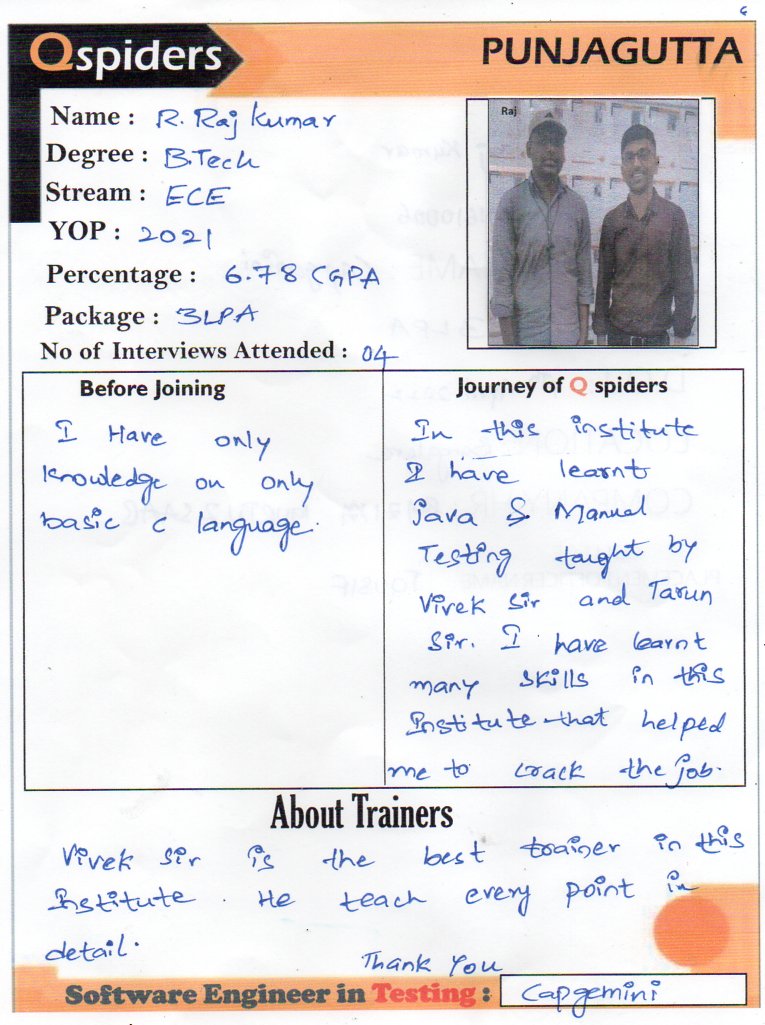 6
Qspiders
PUNJAGUTTA
Name : R. Raj Kumar
Raj
Degree : B.Tech
Stream : ECE
YOP : 2021
Percentage : 6.78 CGPA
Package : 3LPA
No of Interviews Attended : 04
Before Joining
I Have only
knowledge on only
basic c language.
Journey of Q spiders
In this institute
I have learnt
java & Manual
Testing taught by
Vivek Sir and Tarun
Sir. I have learnt
many skills in this
Institute that helped
me to crack the job.
About Trainers
Vivek Sir is the best trainer in this
Institute. He teach every point in
detail.
Thank You
Software Engineer in Testing : Capgemini